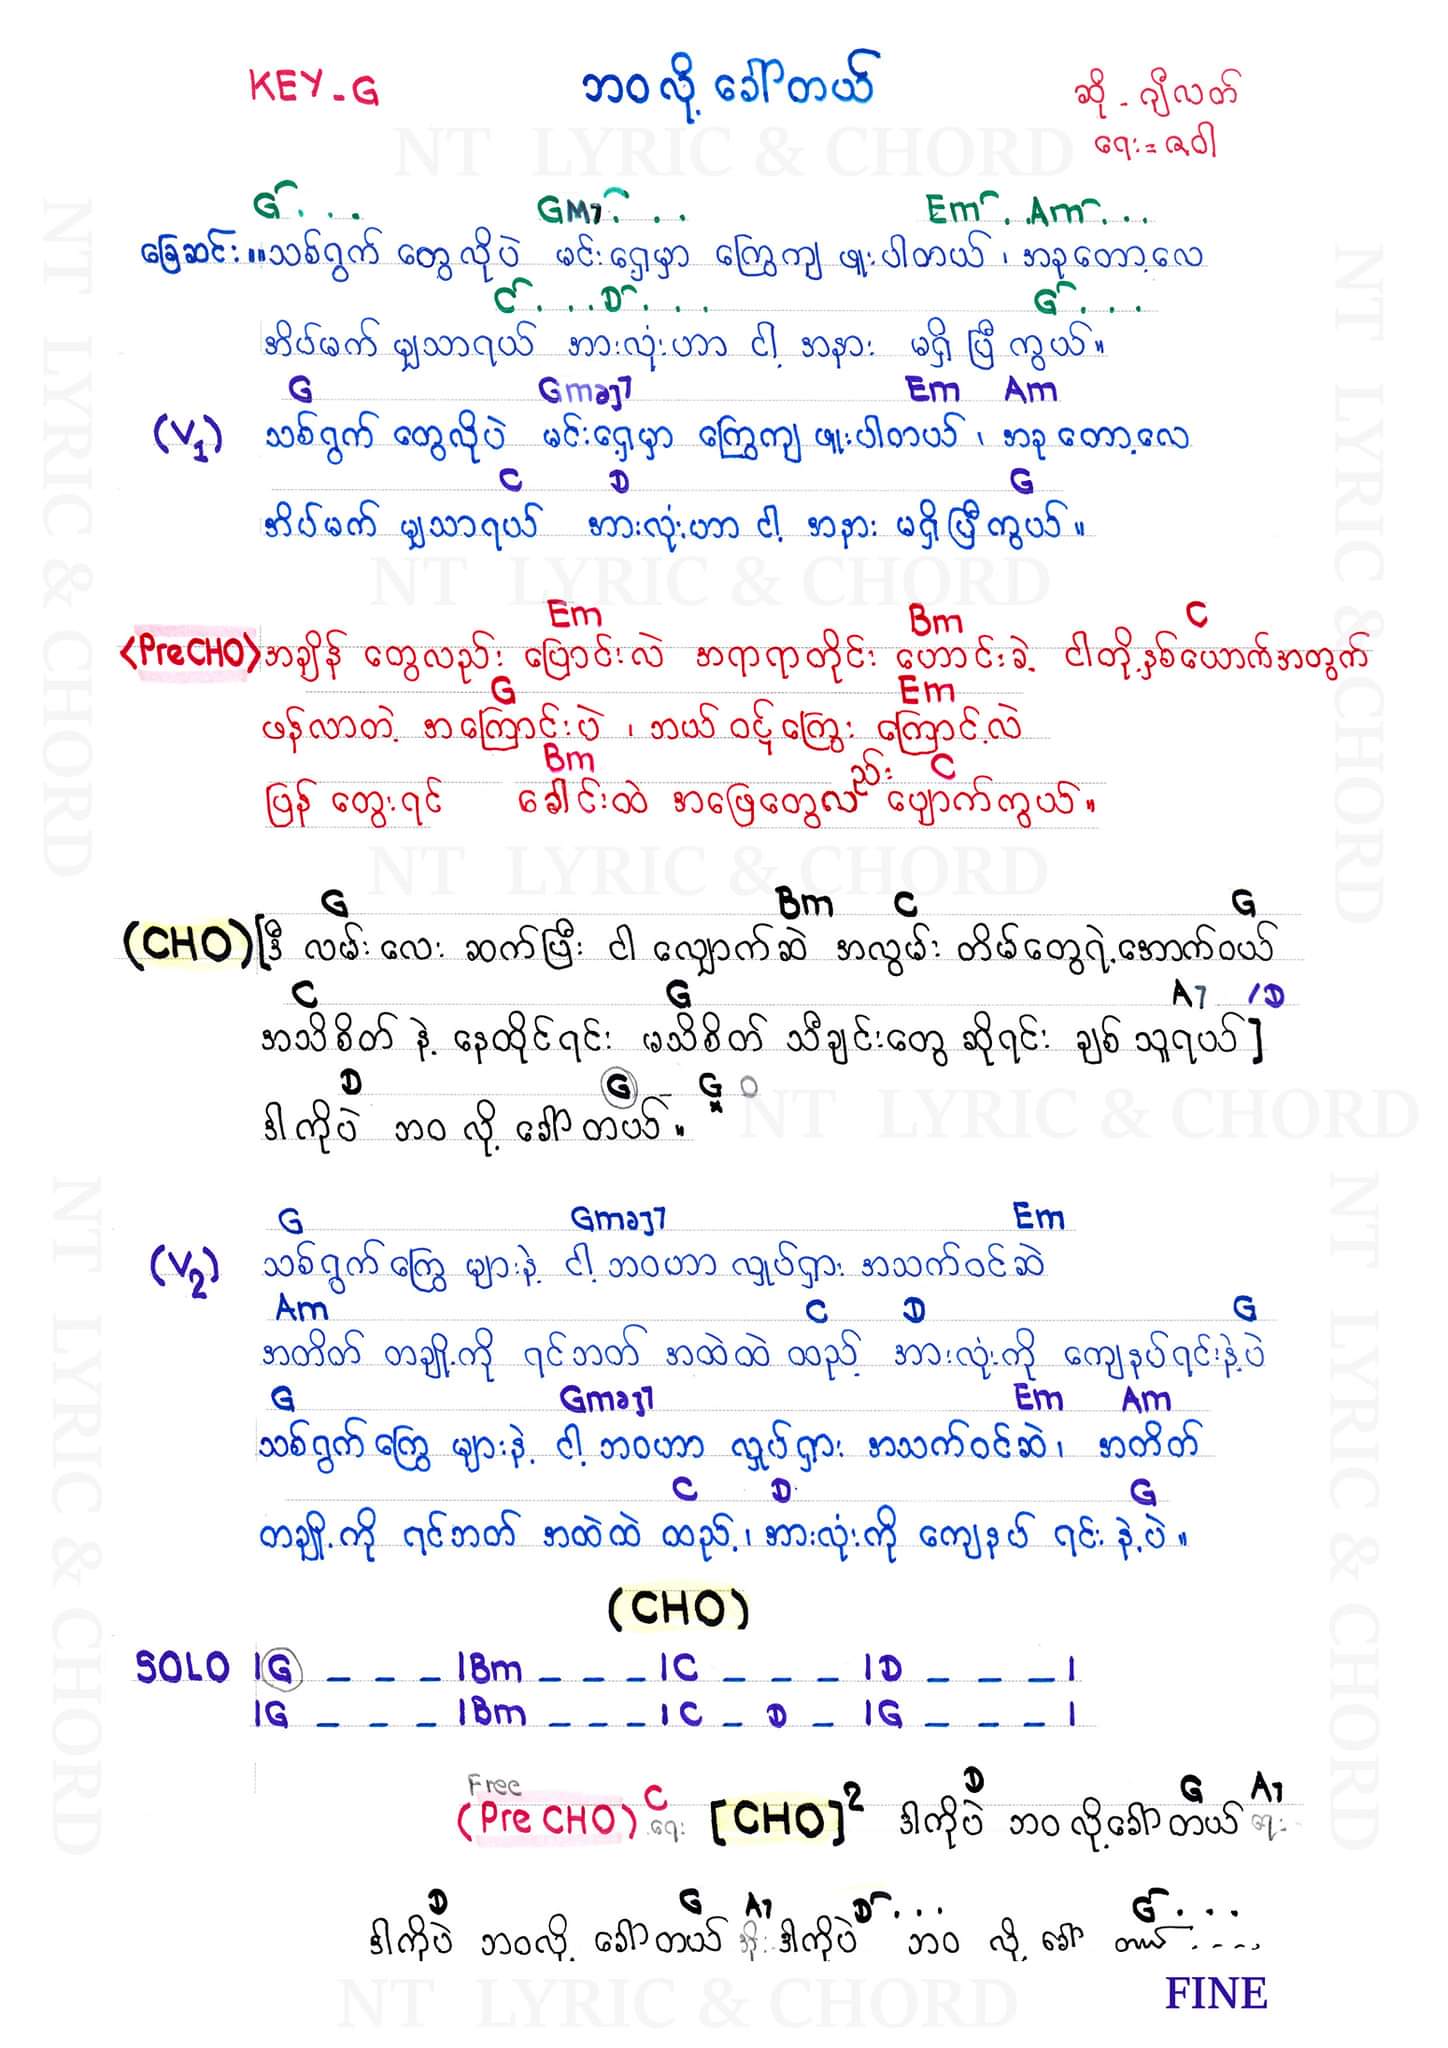 KEY - G ဘဝလို့ ခေါ်တယ် ဆို - ဂျီလတ်
ရေး = ရဝါ
NT LYRIC & CHORD
G . . . GM7 . . . Em . . Am . . .
ခြေဆင်း ။ ။ သစ်ရွက် တွေလိုပဲ မင်းရှေ့မှာ ကြွေကျ ဖူးပါတယ် ၊ အခုတော့လေ
C . . . D . . . G . . .
အိပ်မက် မျှသာရယ် အားလုံးဟာ ငါ့ အနား မရှိ ပြီ ကွယ် ။
G Gmaj7 Em Am
(V1) သစ်ရွက် တွေလိုပဲ မင်းရှေ့မှာ ကြွေကျ ဖူးပါတယ် ၊ အခု တော့လေ
C D G
အိပ်မက် မျှသာရယ် အားလုံးဟာ ငါ့ အနား မရှိ ပြီ ကွယ် ။
NT LYRIC & CHORD
Em Bm C
<PreCHO> အချိန် တွေလည်း ပြောင်းလဲ အရာရာတိုင်း ဟောင်းခဲ့ ငါတို့နှစ်ယောက်အတွက်
G Em
ဖန်လာတဲ့ အကြောင်းပဲ ၊ ဘယ် ဝဋ်ကြွေး ကြောင့်လဲ
Bm C
ပြန် တွေးရင် ခေါင်းထဲ အဖြေတွေလည်း ပျောက်ကွယ် ။
NT LYRIC & CHORD
G Bm C G
(CHO) [ဒီ လမ်း လေး ဆက်ပြီး ငါ လျှောက်ဆဲ အလွမ်း တိမ်တွေရဲ့အောက်ဝယ်
C G A7 /D
အသိစိတ် နဲ့ နေထိုင်ရင်း မသိစိတ် သီချင်းတွေ ဆိုရင်း ချစ် သူရယ်]
D G G
ဒါကိုပဲ ဘဝ လို့ ခေါ်တယ် ။
NT LYRIC & CHORD
G Gmaj7 Em
(V2) သစ်ရွက်ကြွေ များနဲ့ ငါ့ ဘဝဟာ လှုပ်ရှား အသက်ဝင်ဆဲ
Am C D G
အတိတ် တချို့ကို ရင်ဘတ် အထဲထဲ ထည့် အားလုံးကို ကျေနပ်ရင်းနဲ့ပဲ
G Gmaj7 Em Am
သစ်ရွက်ကြွေ များနဲ့ ငါ့ ဘဝဟာ လှုပ်ရှား အသက်ဝင်ဆဲ ၊ အတိတ်
C D G
တချို့ကို ရင်ဘတ် အထဲထဲ ထည့် ၊ အားလုံးကို ကျေနပ် ရင်း နဲ့ပဲ ။
(CHO)
SOLO | G _ _ _ | Bm _ _ _ | C _ _ _ | D _ _ _ |
| G _ _ _ | Bm _ _ _ | C _ D _ | G _ _ _ |
Free C D G A7
(Pre CHO) ရေး [CHO]2 ဒါကိုပဲ ဘဝ လို့ခေါ်တယ်
D G A7 D . . . G . . .
ဒါကိုပဲ ဘဝလို့ ခေါ်တယ် ဒါကိုပဲ ဘဝ လို့ ခေါ် တယ် . . . .
FINE
NT LYRIC & CHORD
NT LYRIC & CHORD
NT LYRIC & CHORD
NT LYRIC & CHORD
NT LYRIC & CHORD